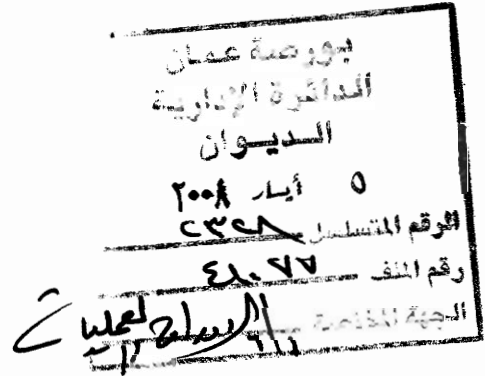 بورصة عمان
الدائرة الإدارية
الديوان
٥ أيار ٢٠٠٨
الرقم المتسلسل ٢٣٢٨
رقم الملف ٤١٠٧٧
الجهة المختصة